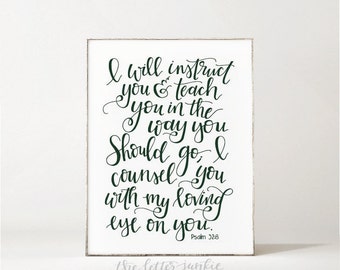 I will instruct
you & teach
you in the
way you
Should go, I
counsel you
with my loving
eye on you.
Psalm 32:8
the letter junkie